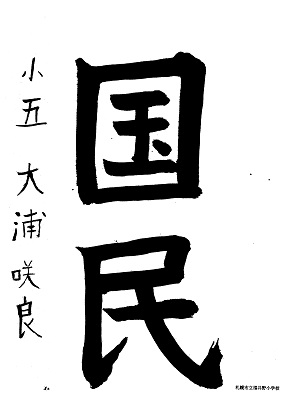 国民
小五 大浦咲良
札幌市立福井野小学校